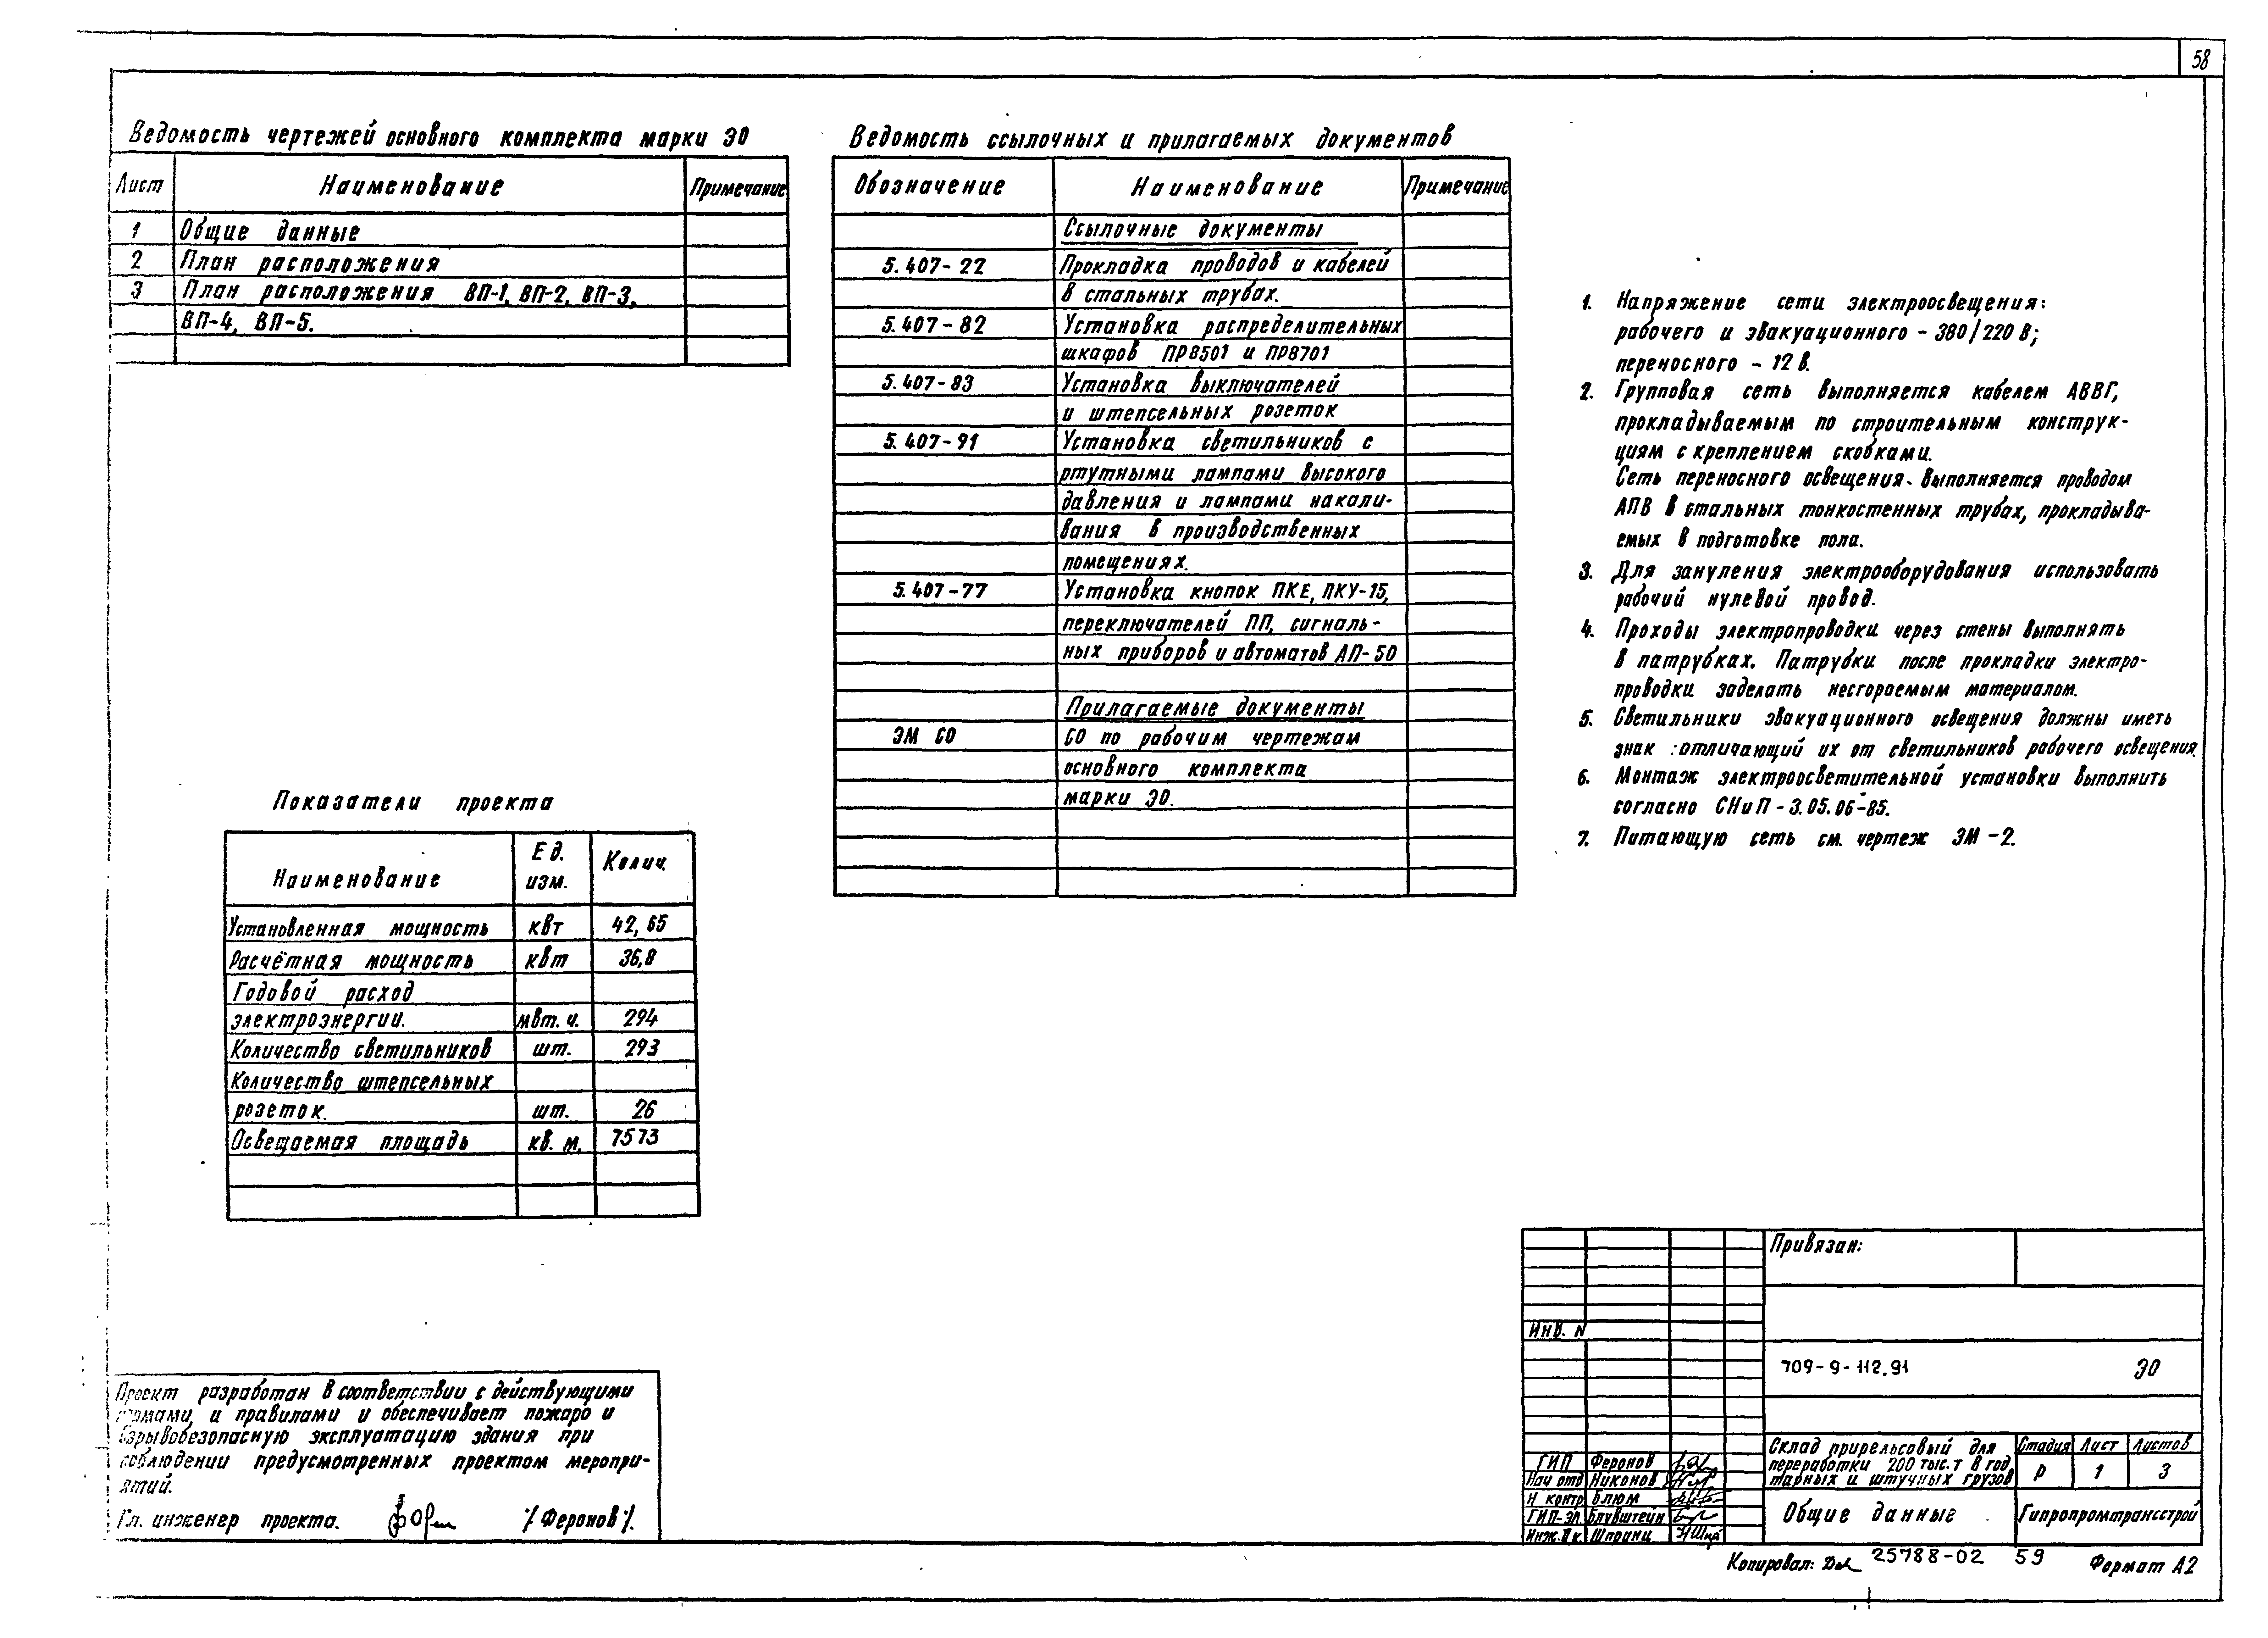 58
Ведомость чертежей основного комплекта марки ЭО
Лист Наименование Примечание
1 Общие данные
2 План расположения
3 План расположения ВП-1, ВП-2, ВП-3,
ВП-4, ВП-5.
Показатели проекта
Наименование Ед. изм. Колич.
Установленная мощность квт 42,65
Расчётная мощность квт 36,8
Годовой расход
электроэнергии. мвт.ч. 294
Количество светильников шт. 293
Количество штепсельных
розеток. шт. 26
Освещаемая площадь кв. м. 7573
Ведомость ссылочных и прилагаемых документов
Обозначение Наименование Примечание
Ссылочные документы
5.407-22 Прокладка проводов и кабелей
в стальных трубах.
5.407-82 Установка распределительных
шкафов ПР8501 и ПР8701
5.407-83 Установка выключателей
и штепсельных розеток
5.407-91 Установка светильников с
ртутными лампами высокого
давления и лампами накали-
вания в производственных
помещениях.
5.407-77 Установка кнопок ПКЕ, ПКУ-15,
переключателей ПП, сигналь-
ных приборов и автоматов АП-50
Прилагаемые документы
ЭМ СО СО по рабочим чертежам
основного комплекта
марки ЭО.
1. Напряжение сети электроосвещения:
рабочего и эвакуационного - 380/220 В;
переносного - 12 В.
2. Групповая сеть выполняется кабелем АВВГ,
прокладываемым по строительным конструк-
циям с креплением скобками.
Сеть переносного освещения выполняется проводом
АПВ в стальных тонкостенных трубах, прокладыва-
емых в подготовке пола.
3. Для зануления электрооборудования использовать
рабочий нулевой провод.
4. Проходы электропроводки через стены выполнять
в патрубках. Патрубки после прокладки электро-
проводки заделать несгораемым материалом.
5. Светильники эвакуационного освещения должны иметь
знак отличающий их от светильников рабочего освещения
6. Монтаж электроосветительной установки выполнить
согласно СНиП-3.05.06-85.
7. Питающую сеть см. чертеж ЭМ-2.
Проект разработан в соответствии с действующими
и правилами и обеспечивает пожаро и
взрывобезопасную эксплуатацию здания при
соблюдении предусмотренных проектом меропри-
ятий.
Гл. инженер проекта. /Феронов/.
Привязан:
Инв. N
709-9-112.91 ЭО
ГИП Феронов
Нач отд Никонов
Н контр Блюм
ГИП-ЭЛ Блувштейн
Инж. II к. Шпринц
Склад прирельсовый для
переработки 200 тыс. т в год
тарных и штучных грузов
Стадия Лист Листов
Р 1 3
Общие данные
Гипропромтрансстрой
Копировал: 25788-02 59 Формат А2